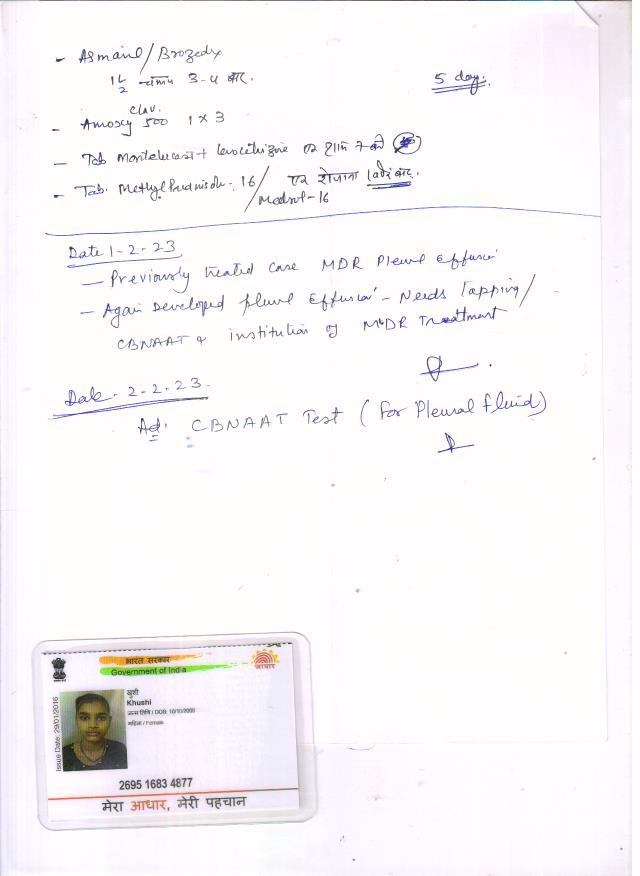 - Asmanil/Brozedex
1 1/2 चम्मच 3-4 बार.
5 day.
Clav.
- Amoxy 500 1 x 3
- Tab Montelucast + Levocetrizine एक शाम 7 बजे
- Tab. Methyl Prednisolo. 16/Medrol-16 एक रोजाना
Date 1-2-23
- Previously treated case MDR Pleural Effusion
- Again Developed pleural Effusion - Needs Tapping/
CBNAAT & institution of MDR Treatment
Date. 2-2-23.
Ad. CBNAAT Test (For Pleural fluid)
भारत सरकार
Government of India
आधार
Issue Date: 29/01/2016
खुशी
Khushi
जन्म तिथि / DOB: 10/10/2008
महिला / Female
2695 1683 4877
मेरा आधार, मेरी पहचान